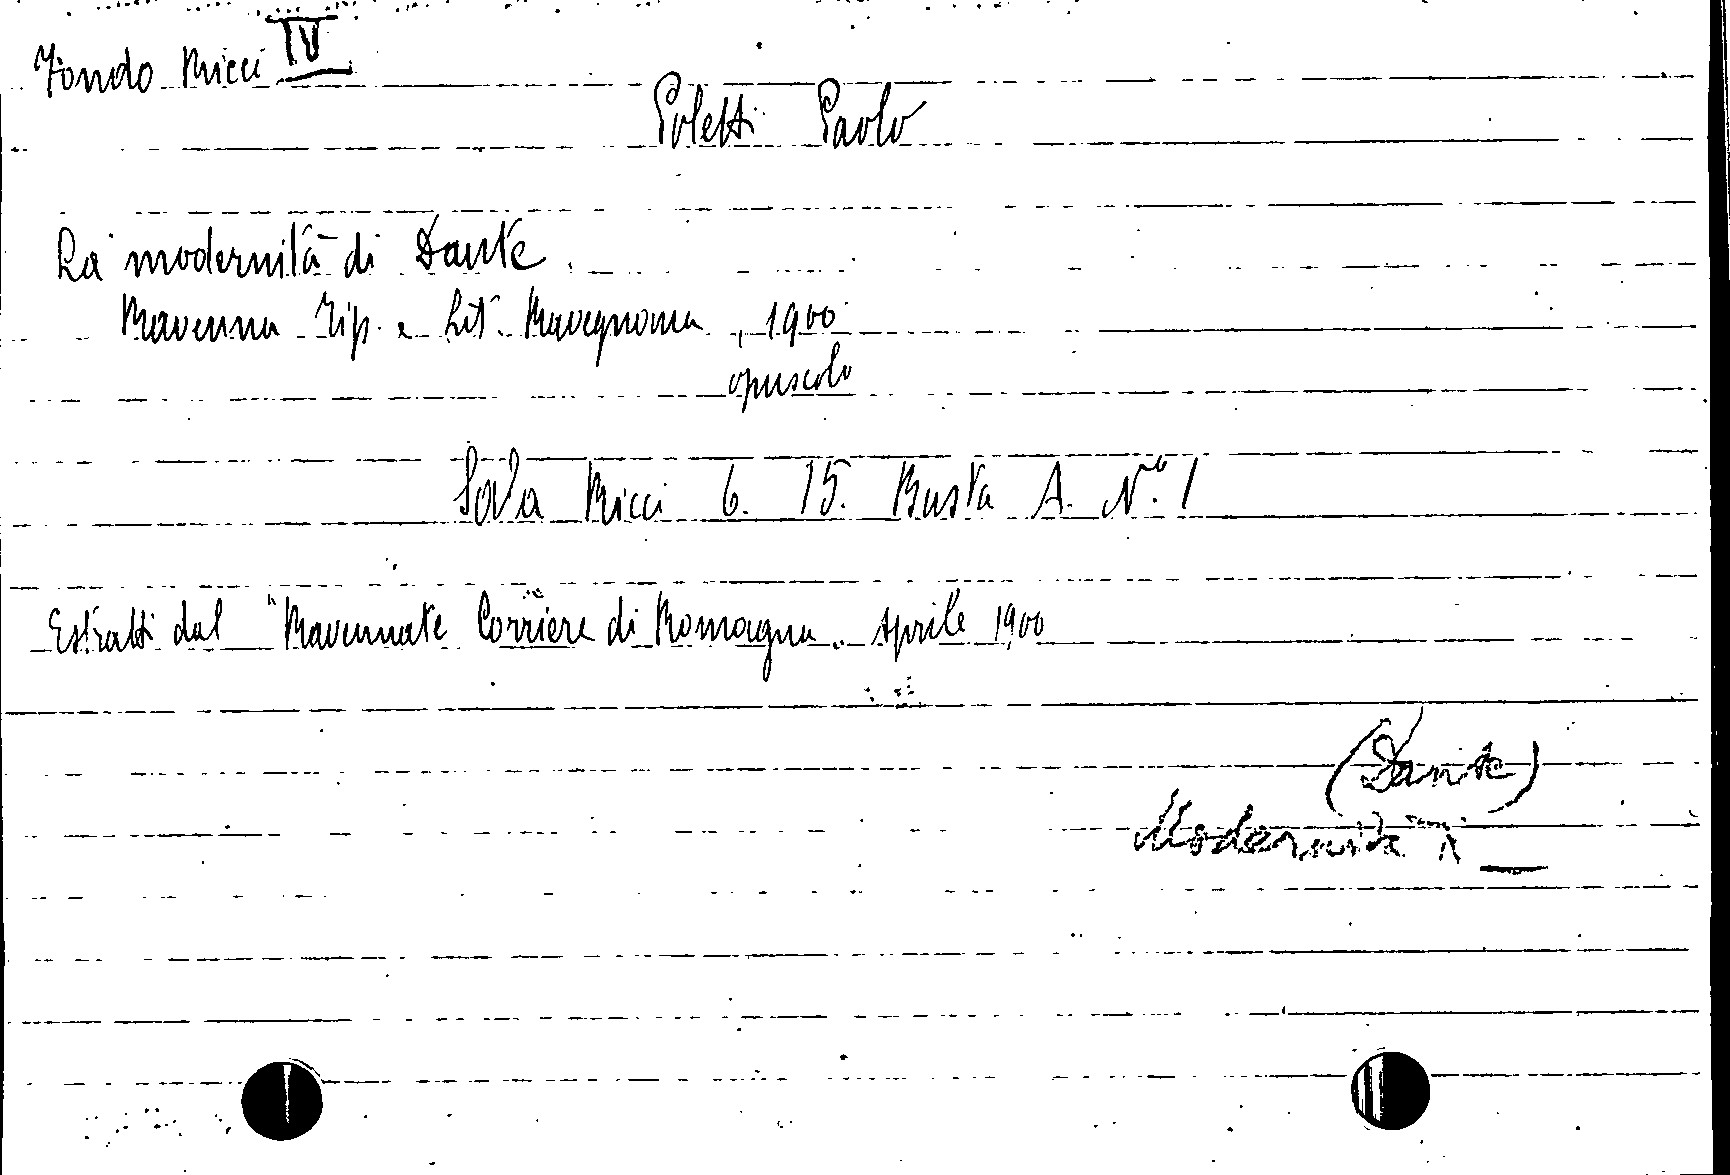 Fondo Ricci IV
Poletti Paolo
La modernità di Dante
Ravenna Tip. e Lit. Ravegnana, 1900
opuscolo
Sala Ricci 6. 15. Busta A. N.º 1
Estratti dal "Ravennate Corriere di Romagna. Aprile 1900
(Dante)
Modernità